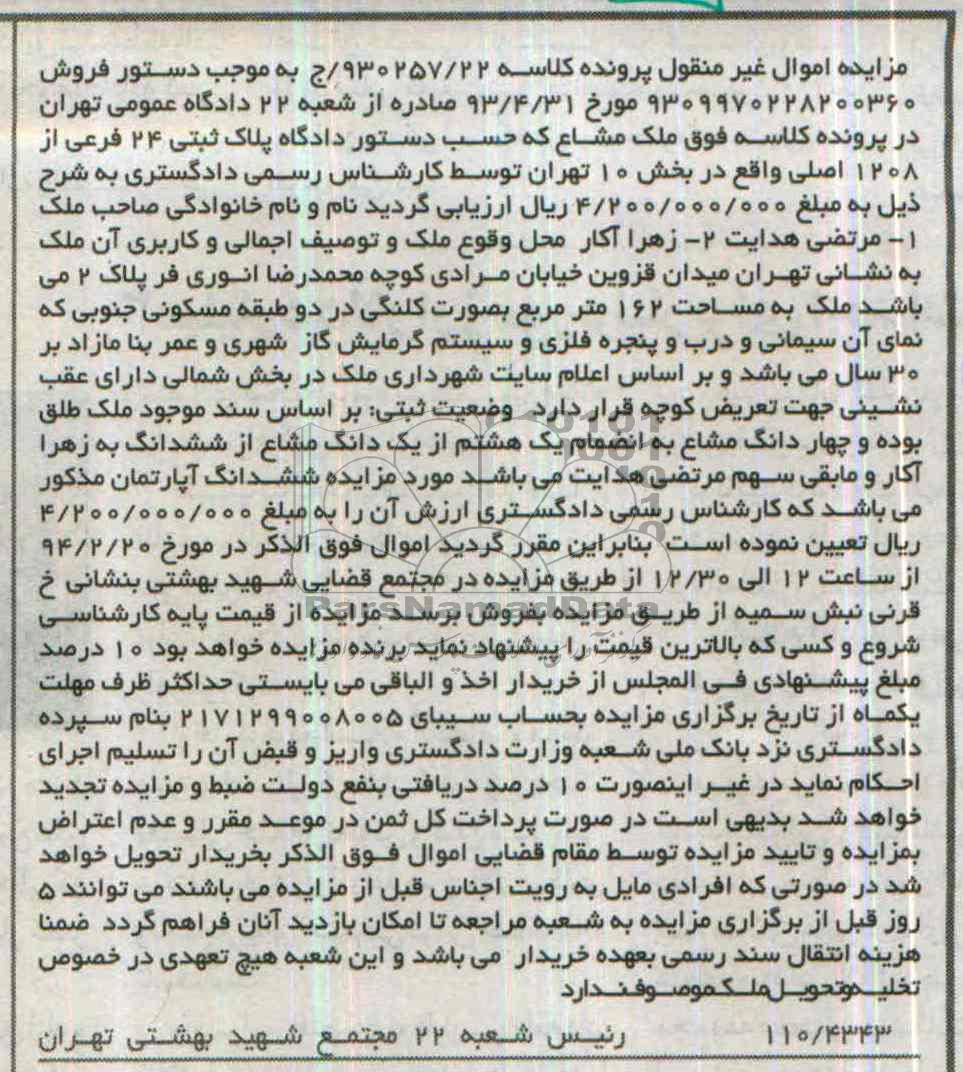 مزایده اموال غیر منقول پرونده کلاسه ۹۳۰۲۵۷/۲۲/ج به موجب دستور فروش
۹۳۰۹۹۷۰۲۲۸۲۰۰۳۶۰ مورخ ۹۳/۴/۳۱ صادره از شعبه ۲۲ دادگاه عمومی تهران
در پرونده کلاسه فوق ملک مشاع که حسب دستور دادگاه پلاک ثبتی ۲۴ فرعی از
۱۲۰۸ اصلی واقع در بخش ۱۰ تهران توسط کارشناس رسمی دادگستری به شرح
ذیل به مبلغ ۴/۲۰۰/۰۰۰/۰۰۰ ریال ارزیابی گردید نام و نام خانوادگی صاحب ملک
۱- مرتضی هدایت ۲- زهرا آکار محل وقوع ملک و توصیف اجمالی و کاربری آن ملک
به نشانی تهران میدان قزوین خیابان مرادی کوچه محمدرضا انوری فر پلاک ۲ می
باشد ملک به مساحت ۱۶۲ متر مربع بصورت کلنگی در دو طبقه مسکونی جنوبی که
نمای آن سیمانی و درب و پنجره فلزی و سیستم گرمایش گاز شهری و عمر بنا مازاد بر
۳۰ سال می باشد و بر اساس اعلام سایت شهرداری ملک در بخش شمالی دارای عقب
نشینی جهت تعریض کوچه قرار دارد وضعیت ثبتی: بر اساس سند موجود ملک طلق
بوده و چهار دانگ مشاع به انضمام یک هشتم از یک دانگ مشاع از ششدانگ به زهرا
آکار و مابقی سهم مرتضی هدایت می باشد مورد مزایده ششدانگ آپارتمان مذکور
می باشد که کارشناس رسمی دادگستری ارزش آن را به مبلغ ۴/۲۰۰/۰۰۰/۰۰۰
ریال تعیین نموده است بنابراین مقرر گردید اموال فوق الذکر در مورخ ۹۴/۲/۲۰
از ساعت ۱۲ الی ۱۲/۳۰ از طریق مزایده در مجتمع قضایی شهید بهشتی بنشانی خ
قرنی نبش سمیه از طریق مزایده بفروش برسد مزایده از قیمت پایه کارشناسی
شروع و کسی که بالاترین قیمت را پیشنهاد نماید برنده مزایده خواهد بود ۱۰ درصد
مبلغ پیشنهادی فی المجلس از خریدار اخذ و الباقی می بایستی حداکثر ظرف مهلت
یکماه از تاریخ برگزاری مزایده بحساب سیبای ۲۱۷۱۲۹۹۰۰۸۰۰۵ بنام سپرده
دادگستری نزد بانک ملی شعبه وزارت دادگستری واریز و قبض آن را تسلیم اجرای
احکام نماید در غیر اینصورت ۱۰ درصد دریافتی بنفع دولت ضبط و مزایده تجدید
خواهد شد بدیهی است در صورت پرداخت کل ثمن در موعد مقرر و عدم اعتراض
بمزایده و تایید مزایده توسط مقام قضایی اموال فوق الذکر بخریدار تحویل خواهد
شد در صورتی که افرادی مایل به رویت اجناس قبل از مزایده می باشند می توانند ۵
روز قبل از برگزاری مزایده به شعبه مراجعه تا امکان بازدید آنان فراهم گردد ضمنا
هزینه انتقال سند رسمی بعهده خریدار می باشد و این شعبه هیچ تعهدی در خصوص
تخلیه وتحویل ملک موصوف ندارد
۱۱۰/۴۳۴۳ رئیس شعبه ۲۲ مجتمع شهید بهشتی تهران
ParsNamadData